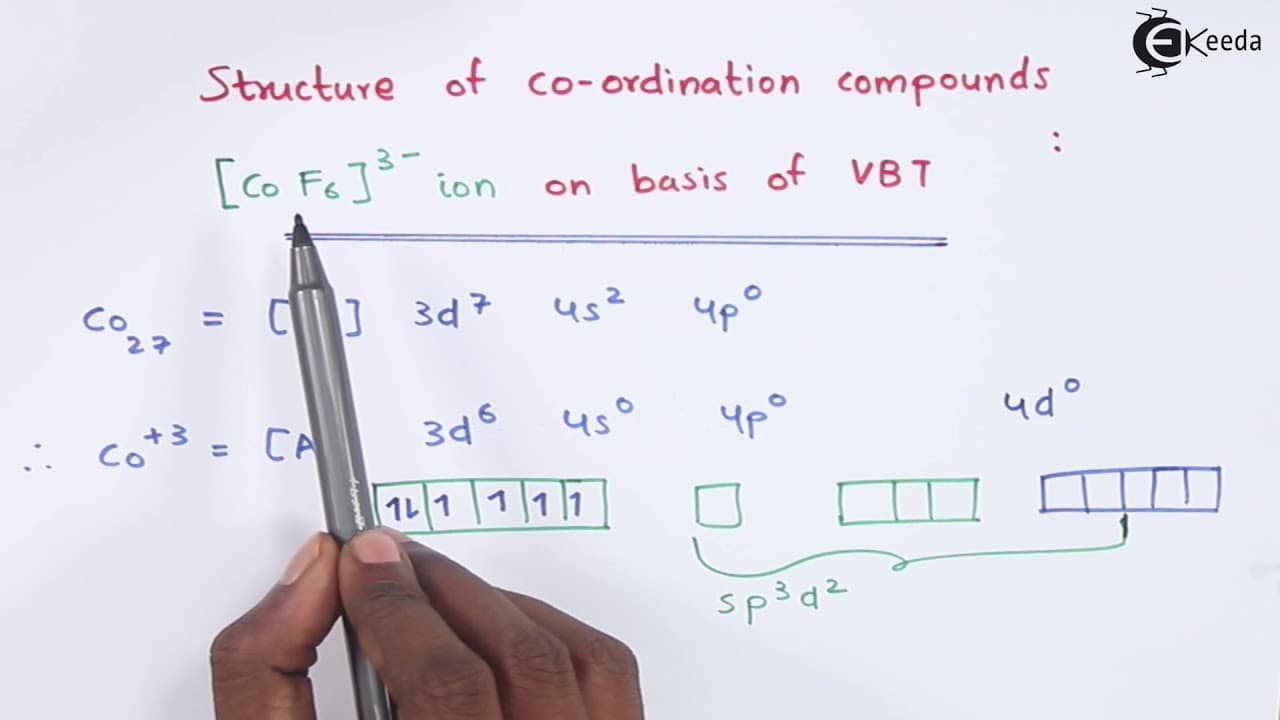 EKeeda
Structure of co-ordination compounds :
[Co F6]3- ion on basis of VBT
Co27 = [ ] 3d7 4s2 4p0
∴ Co+3 = [A 3d6 4s0 4p0 4d0
1L 1 1 1 1
sp3d2